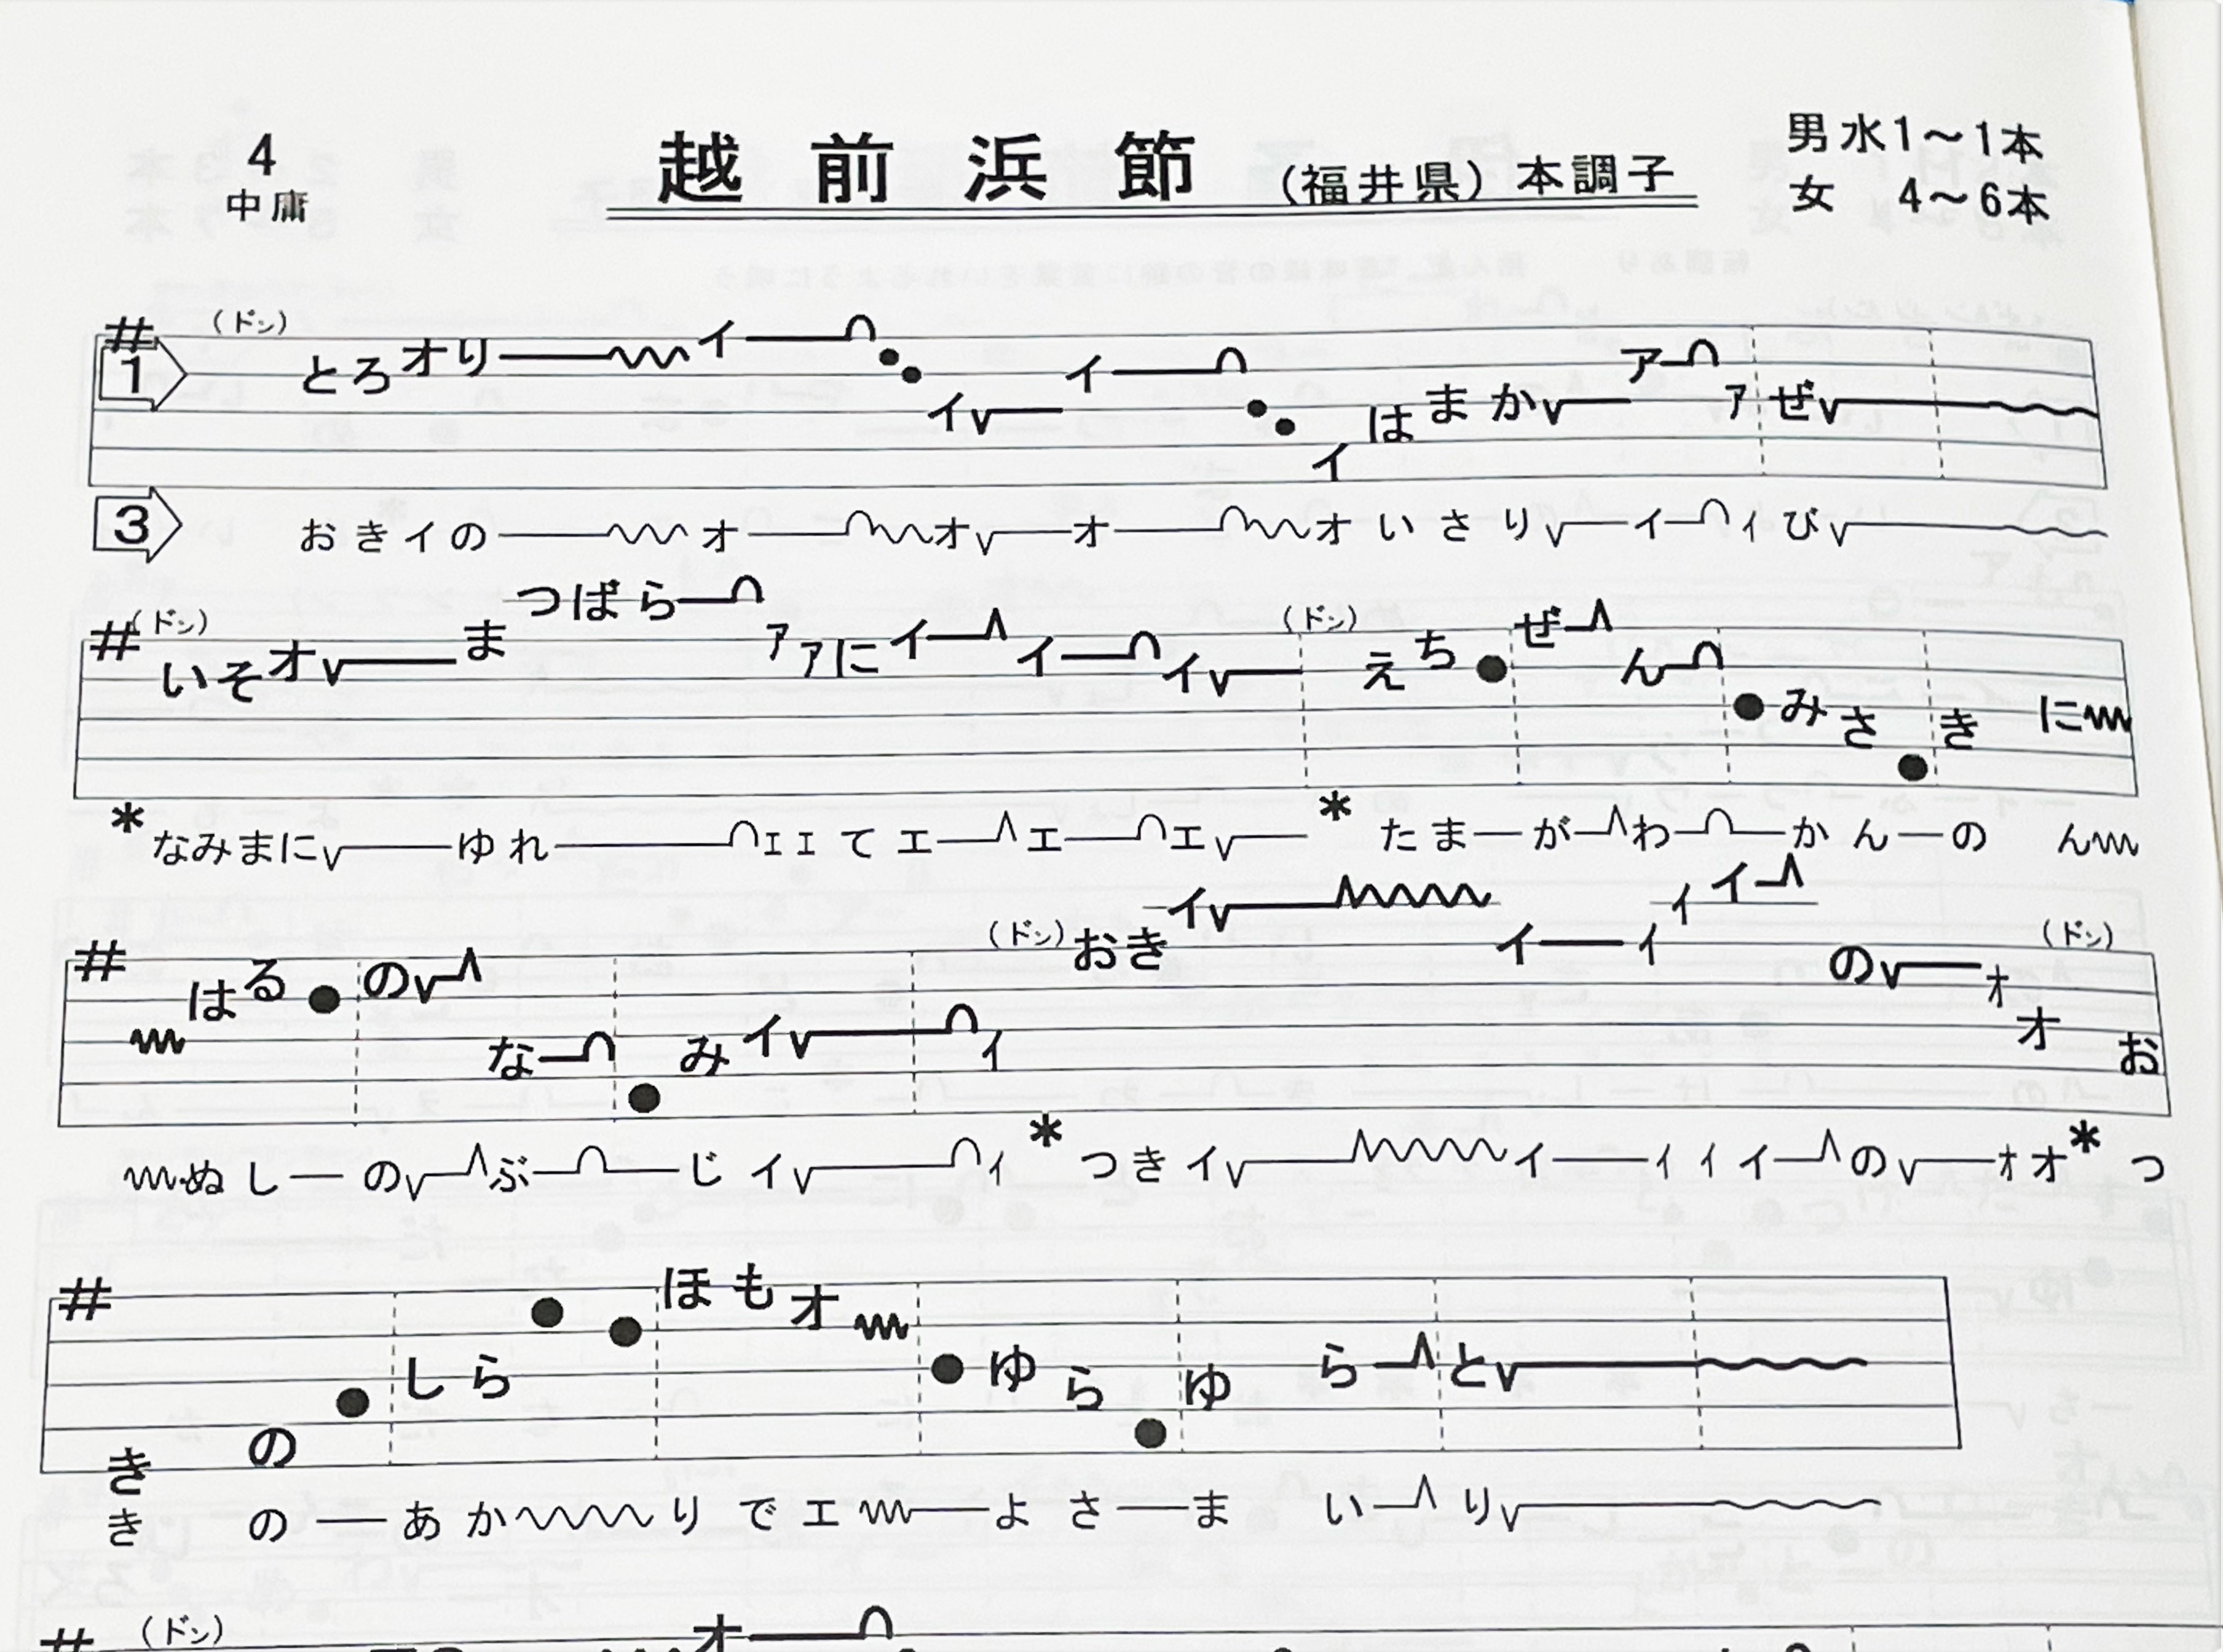 4
中庸
越前浜節 (福井県) 本調子
男水1～1本
女 4～6本
# (ドン)
1 とろオリイイイイはまかアァぜ
3 おきイのオオオオいさりイィび
# (ドン) (ドン)
いそオまつばらァァにイイイえちぜんみさきに
* なみまにゆれエエてエエエ * たまがわかんのん
# (ドン) (ドン)
はるのなみイィおきイイィィイのォオお
ぬしのぶじイィ * つきイイィィイのォオ * つ
#
きのしらほもオゆらゆらと
きのあかりでエよさまいり
# (ドン) オ